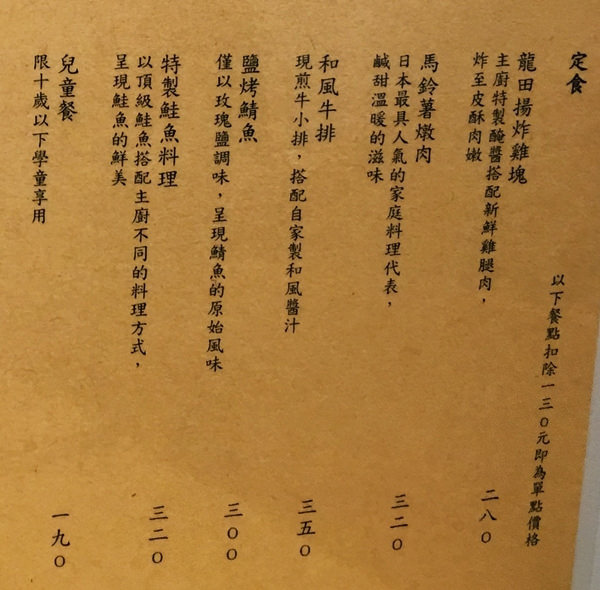 定食
以下餐點扣除一三〇元即為單點價格
龍田揚炸雞塊
主廚特製醃醬搭配新鮮雞腿肉，
炸至皮酥肉嫩
二八〇
馬鈴薯燉肉
日本最具人氣的家庭料理代表，
鹹甜溫暖的滋味
三二〇
和風牛排
現煎牛小排，搭配自家製和風醬汁
三五〇
鹽烤鯖魚
僅以玫瑰鹽調味，呈現鯖魚的原始風味
三〇〇
特製鮭魚料理
以頂級鮭魚搭配主廚不同的料理方式，
呈現鮭魚的鮮美
三二〇
兒童餐
限十歲以下學童享用
一九〇